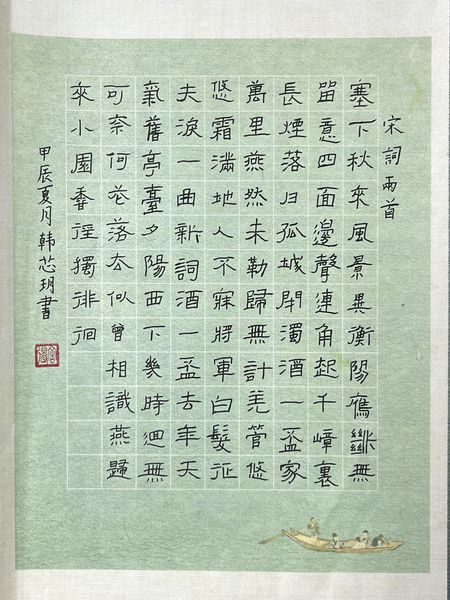 宋詞兩首
塞下秋來風景異衡陽鴈𢇍無
留意四面邊聲連角起千嶂裏
長煙落日孤城閉濁酒一盃家
萬里燕然未勒歸無計羌管悠
悠霜滿地人不寐將軍白髮征
夫淚一曲新詞酒一盃去年天
氣舊亭臺夕陽西下幾時迴無
可奈何花落去似曾相識燕歸
來小園香徑獨徘徊
甲辰夏月韩芯玥書